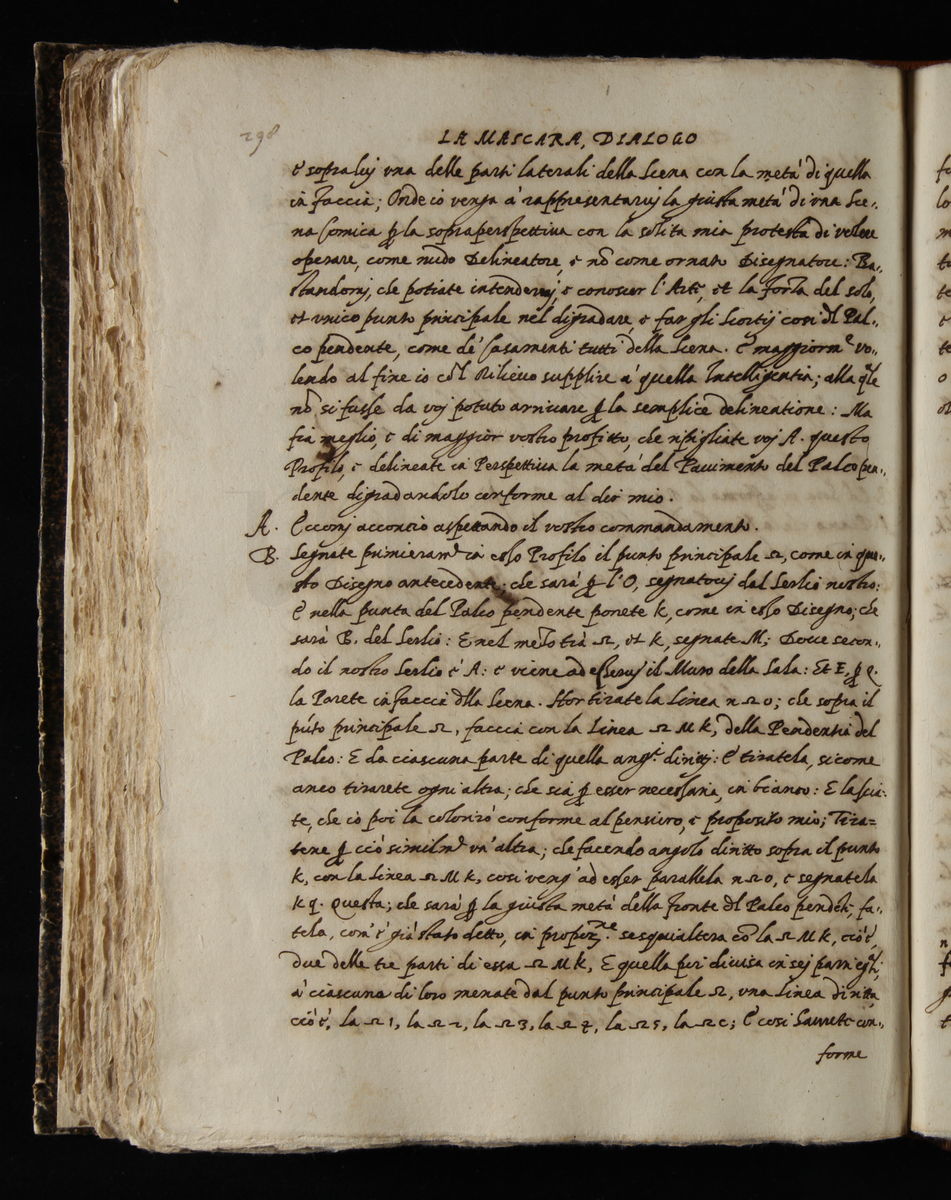 298
LA MASCARA, DIALOGO
e sopra lui una delle parti laterali della Scena con la metà di quella
in faccia; Onde io venga à rappresentarui la giusta metà di una Sce-
na Comica p la sopraperspettiua con la solita mia protesta di volere
operare, come nudo Delineatore, e nõ come ornato Disegnatore: Ba-
standomi, che potiate intendermi, e conoscer l'Arte, et la forza del solo,
et vnico punto principale nel digradare e far gli Scortij così dl Pal-
co pendente, come de' Casamenti tutti della Scena. E maggiorm.e vo-
lendo al fine io cõl Rilieuo supplire a' quella Intelligentia; alla qle
nõ si fusse da voi potuto arriuare p la semplice delineatione: Ma
fia meglio, e di maggior vostro profitto, che ripigliate voi A. questo
Profilo, e delineate in Perspettiua la metà del Pauimento del Palco pen-
dente digradandolo conforme al dir mio.
A. Eccomi acconcio aspettando il vostro commandamento.
B. Segnate primieram.e in esso Profilo il punto principale Ω, come in que-
sto Disegno antecedente; che sarà p l'O, segnatoui dal Serlio nostro:
E nella punta del Palco pendente ponete K, come in esso Disegno; che
sarà B. del Serlio: E nel mezo trà Ω, et K, segnate M; Doue secon-
do il nostro Serlio è A: e viene ad esserui il Muro della Sala: Et E, p Q.
la Parete in faccia dlla Scena. Hor tirate la Linea n Ω o; che sopra il
pũto principale Ω, faccia con la Linea Ω M K, della Pendentia del
Palco: E da ciascuna parte di quella ang.i diritti: E tiratela, si come
anco tirarete ogni altra; che sia p esser necessaria, in bianco: E lascia-
te, che io poi la colorirò conforme al pensiero, e proposito mio; Tira=
tene p ciò similm.e vn' altra; che facendo angolo diritto sopra il punto
K, con la Linea Ω M K, così veng' ad esser parallela n Ω o, e segnatela
K q. Questa; che sarà p la giusta metà della fronte dl Palco pendẽte; fa-
tela, com'è già stato detto, in proporz.ne sesquialtera cõ la Ω M K, ciò è,
due delle tre parti di essa Ω M K, E quella poi diuisa in sei parti eq.li,
à ciascuna di loro menate dal punto principale Ω, vna linea diritta,
ciò è, la Ω 1, la Ω 2, la Ω 3, la Ω 4, la Ω 5, la Ω 6; E così haurete con-
forme